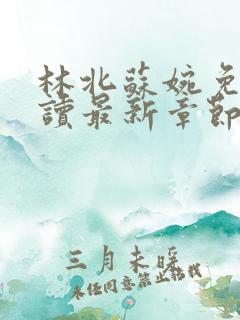 林北蘇婉免
讀最新章節
三月未暖
未经同意禁止转载